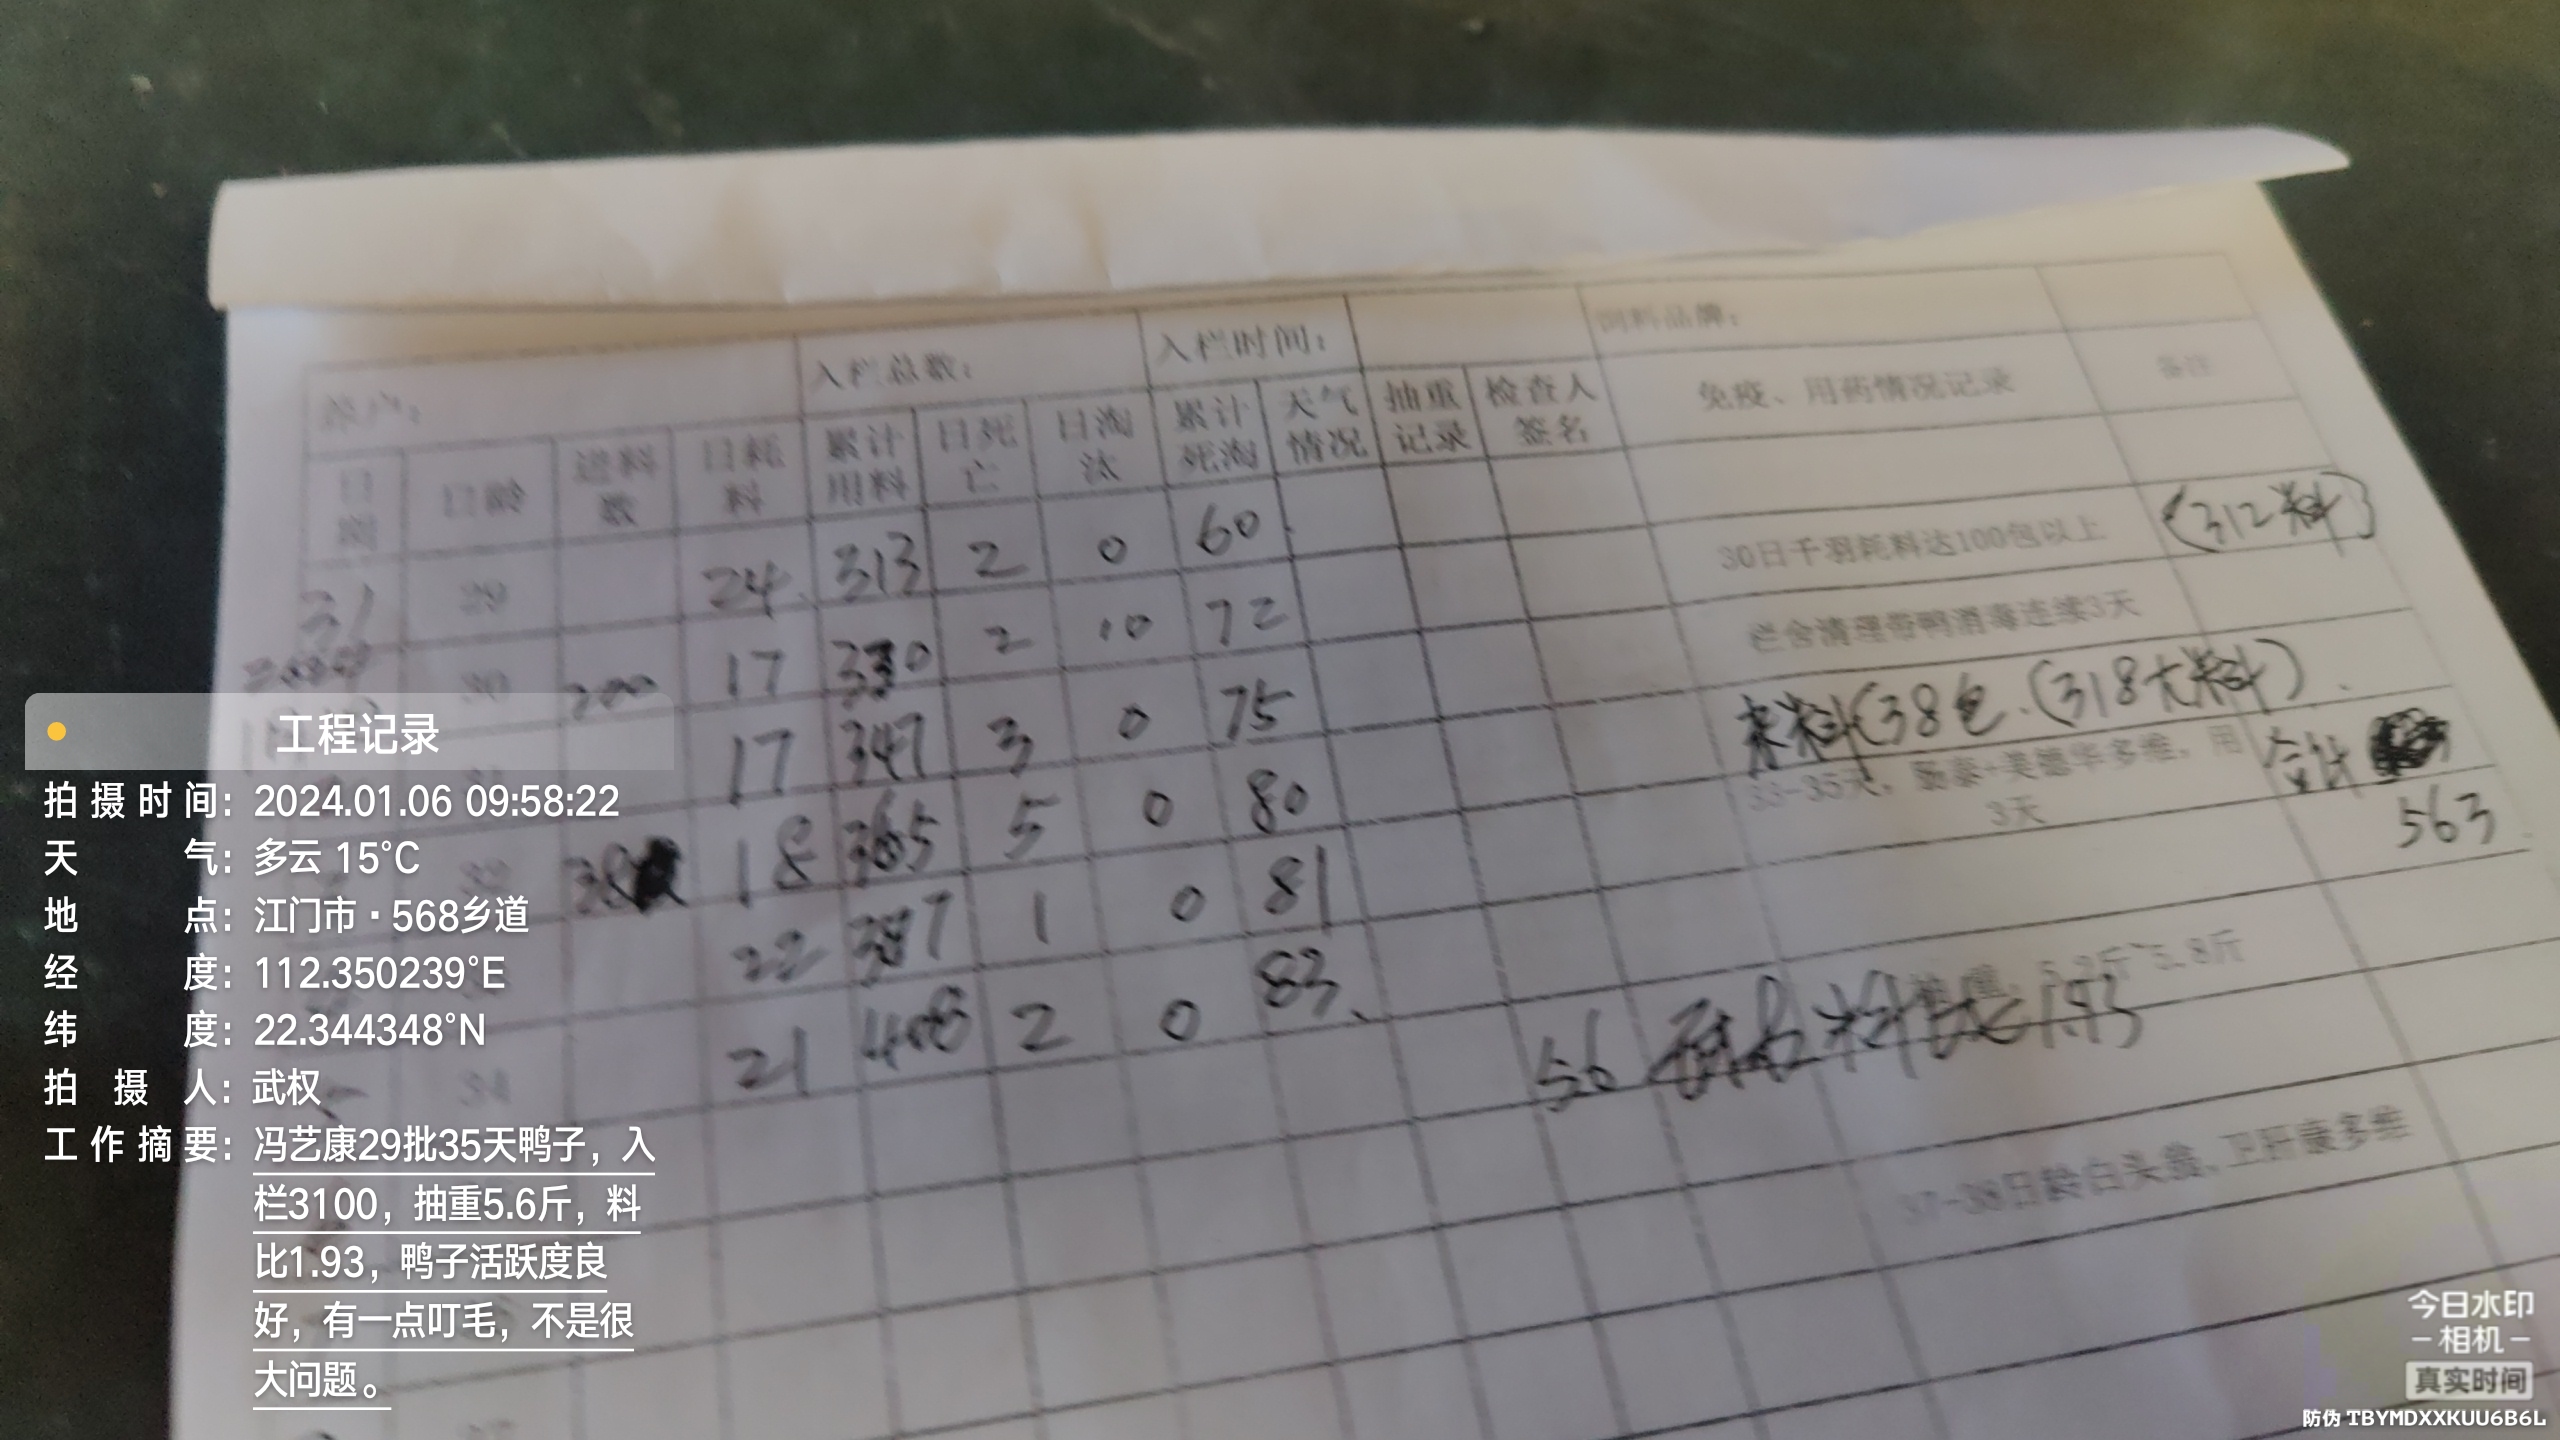 养户：
入栏总数：
入栏时间：
饲料品牌：
日期 日龄 进料数 日耗料 累计用料 日死亡 日淘汰 累计死淘 天气情况 抽重记录 检查人签名 免疫、用药情况记录 备注
31 29 24 313 2 0 60 30日千羽耗料达100包以上 (312料)
30 200 17 330 2 10 72 栏舍清理带鸭消毒连续3天
17 347 3 0 75 来料(38包.(318大料)
18 365 5 0 80 33-35天，肠泰+美德华多维，用3天 合计
563
22 387 1 0 81
34 21 408 2 0 83
5.8斤
56 料比1.93
37-38日龄白头翁、卫肝康多维
工程记录
拍摄时间：2024.01.06 09:58:22
天气：多云 15°C
地点：江门市·568乡道
经度：112.350239°E
纬度：22.344348°N
拍摄人：武权
工作摘要：冯艺康29批35天鸭子，入
栏3100，抽重5.6斤，料
比1.93，鸭子活跃度良
好，有一点叮毛，不是很
大问题。
今日水印
-相机-
真实时间
防伪 TBYMDXXKUU6B6L